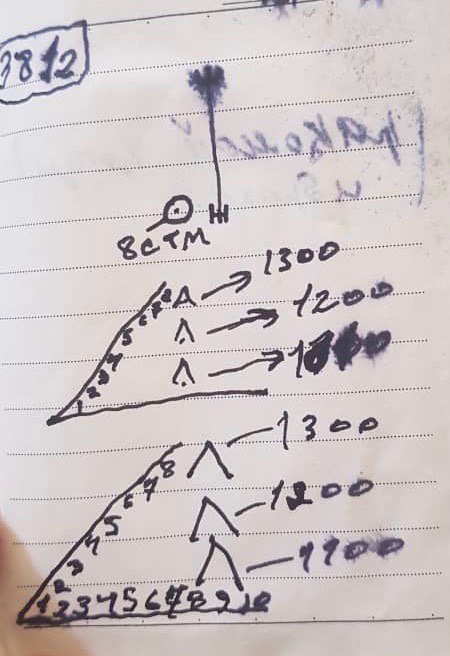 3812
8cTM
1 2 3 4 5 6 7 8
1300
1200
1 2 3 4 5 6 7 8
1300
1200
1100
1 2 3 4 5 6 7 8 9 10